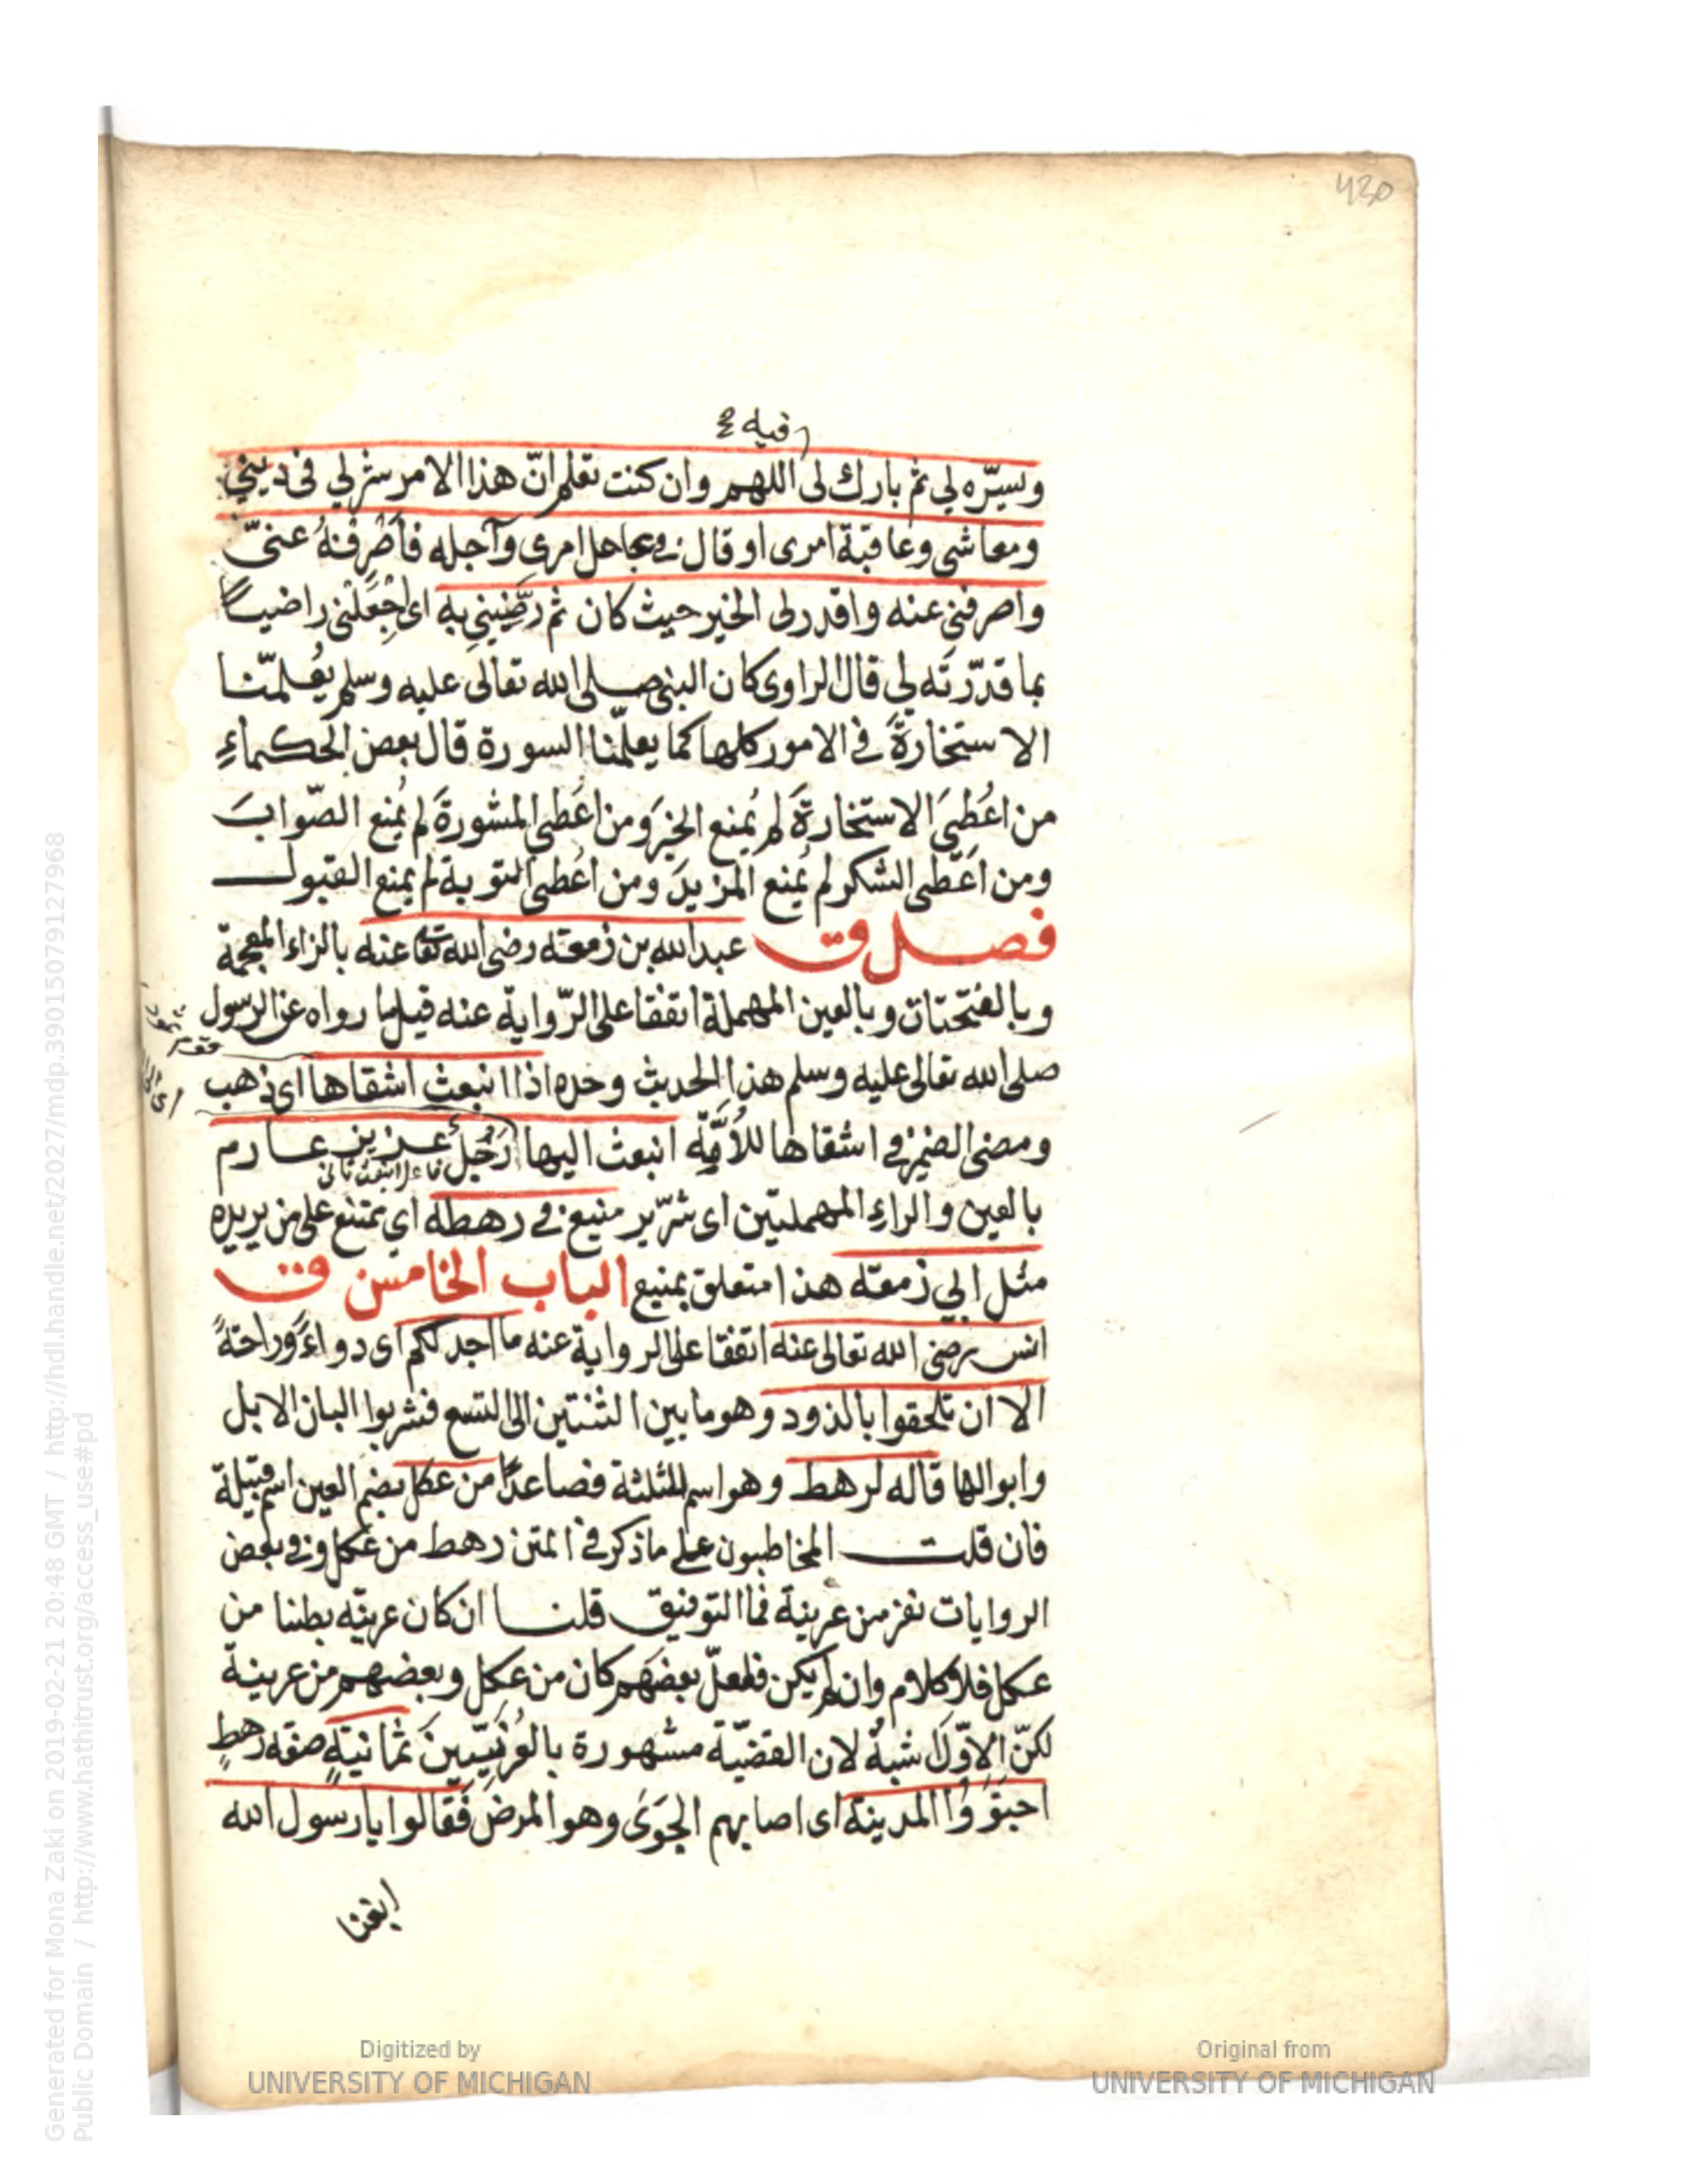 430
فيه
ويسّره لي ثم بارك لى اللهم وان كنت تعلم انّ هذا الامر شر لي فى ديني
ومعاشى وعاقبة امرى او قال فى عاجل امرى وآجله فاصْرِفْهُ عنىّ
واصرفنى عنه واقدر لى الخير حيث كان ثم رضّيني به اى اجْعَلْنى راضيا
بما قدّرته لي قال الراوى كان النبى صلى الله تعالى عليه وسلم يُعلّمنا
الاستخارةَ فى الامور كلها كما يعلّمنا السورة قال بعض الحكماءِ
من اُعْطىَ الاستخارةَ لم يُمنع الخيرَ ومن اعُطى المشورةَ لم يُمنع الصّوابَ
ومن اعُطى الشكر لم يُمنع المزيدَ ومن اعُطى التوبة لم يمنع القبول
فصل ق عبد الله بن زمعة رضى الله تعا عنه بالزاء المعجمة
وبالفتحتات وبالعين المهملة اتفقا على الرّواية عنه قيل ما رواه عن الرسول
صلى الله تعالى عليه وسلم هذا الحديث وحده اذا انبعث اشقاها اى ذهب
ومضى الضمير فى اشقاها للاُمّة انبعث اليها رَجُلٌ عزيز عارم
فاعل انبعث ثانى
بالعين والراءِ المهملتين اى شرّير منيع فى رهطه اي يمتنع على من يريده
مثل ابي زمعة هذا متعلق بمنيع الباب الخامس ق
انس رضى الله تعالى عنه اتفقا على الرواية عنه ما اجد لكم اى دواءً وراحةً
الا ان تلحقوا بالذود وهو ما بين الثنتين الى التسع فشربوا البان الابل
وابوالها قاله لرهط وهو اسم للثلثة فصاعدًا من عكل بضم العين اسم قبيلة
فان قلت المخاطبون على ما ذكر فى المتن رهط من عكل وفى بعض
الروايات نفر من عرينة فما التوفيق قلنا ان كان عرينة بطنا من
عكل فلا كلام وان لم يكن فلعلّ بعضهم كان من عكل وبعضهم من عرينة
لكنّ الاوّل اشبهُ لان القضيّة مشهورة بالعُرَنيّينَ ثمانيةٍ صفة رهطٍ
اجتووُا المدينة اى اصابهم الجَوَى وهو المرض فقالوا يا رسول الله
ابغنا